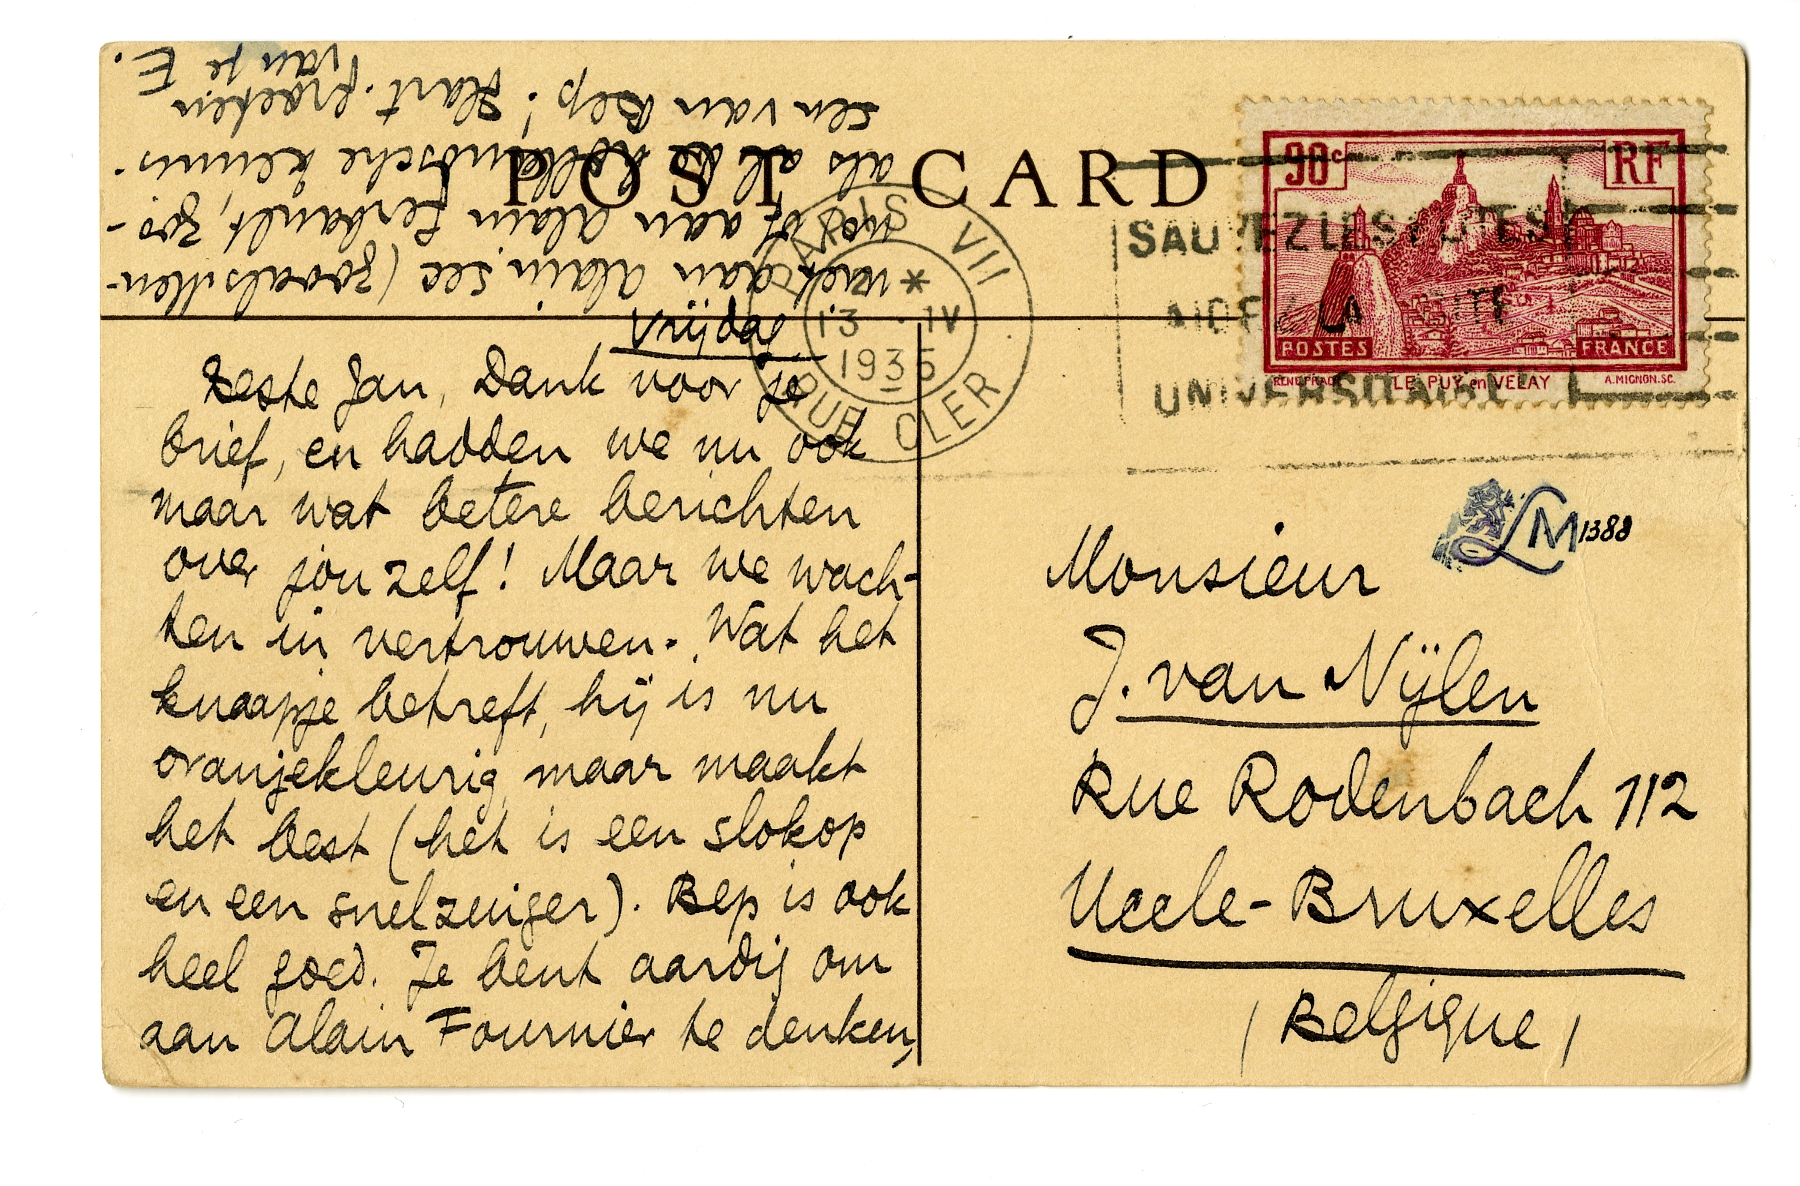 POST CARD
90c
RF
POSTES
FRANCE
LE PUY en VELAY
A. MIGNON. SC.
PARIS VII
*
13 · IV
1935
RUE CLER
SAUVEZ LES
AIDEZ LA
UNIVERSITAIRE
LM 1388
Vrijdag
Beste Jan, Dank voor je
brief, en hadden we nu ook
maar wat betere berichten
over jou zelf! Maar we wach-
ten in vertrouwen. Wat het
knaapje betreft, hij is nu
oranjekleurig, maar maakt
het best (het is een slokop
en een snelzuiger). Bep is ook
heel goed. Je bent aardig om
aan Alain Fournier te denken,
niet aan Alain sec (zooals Men-
no) of aan Alain Gerbault, zoo-
als al de hollandsche kennis-
sen van Bep! Hart. groeten
van je E.
Monsieur
J. van Nijlen
Rue Rodenbach 112
Uccle-Bruxelles
(Belgique)